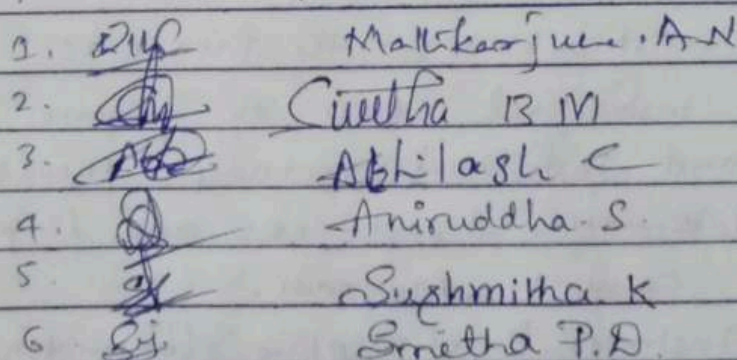 1. Mallikarjuna. A N
2. B M
3. Abhilash C
4. Aniruddha. S.
5 Sushmitha. K
6 Smitha P.D